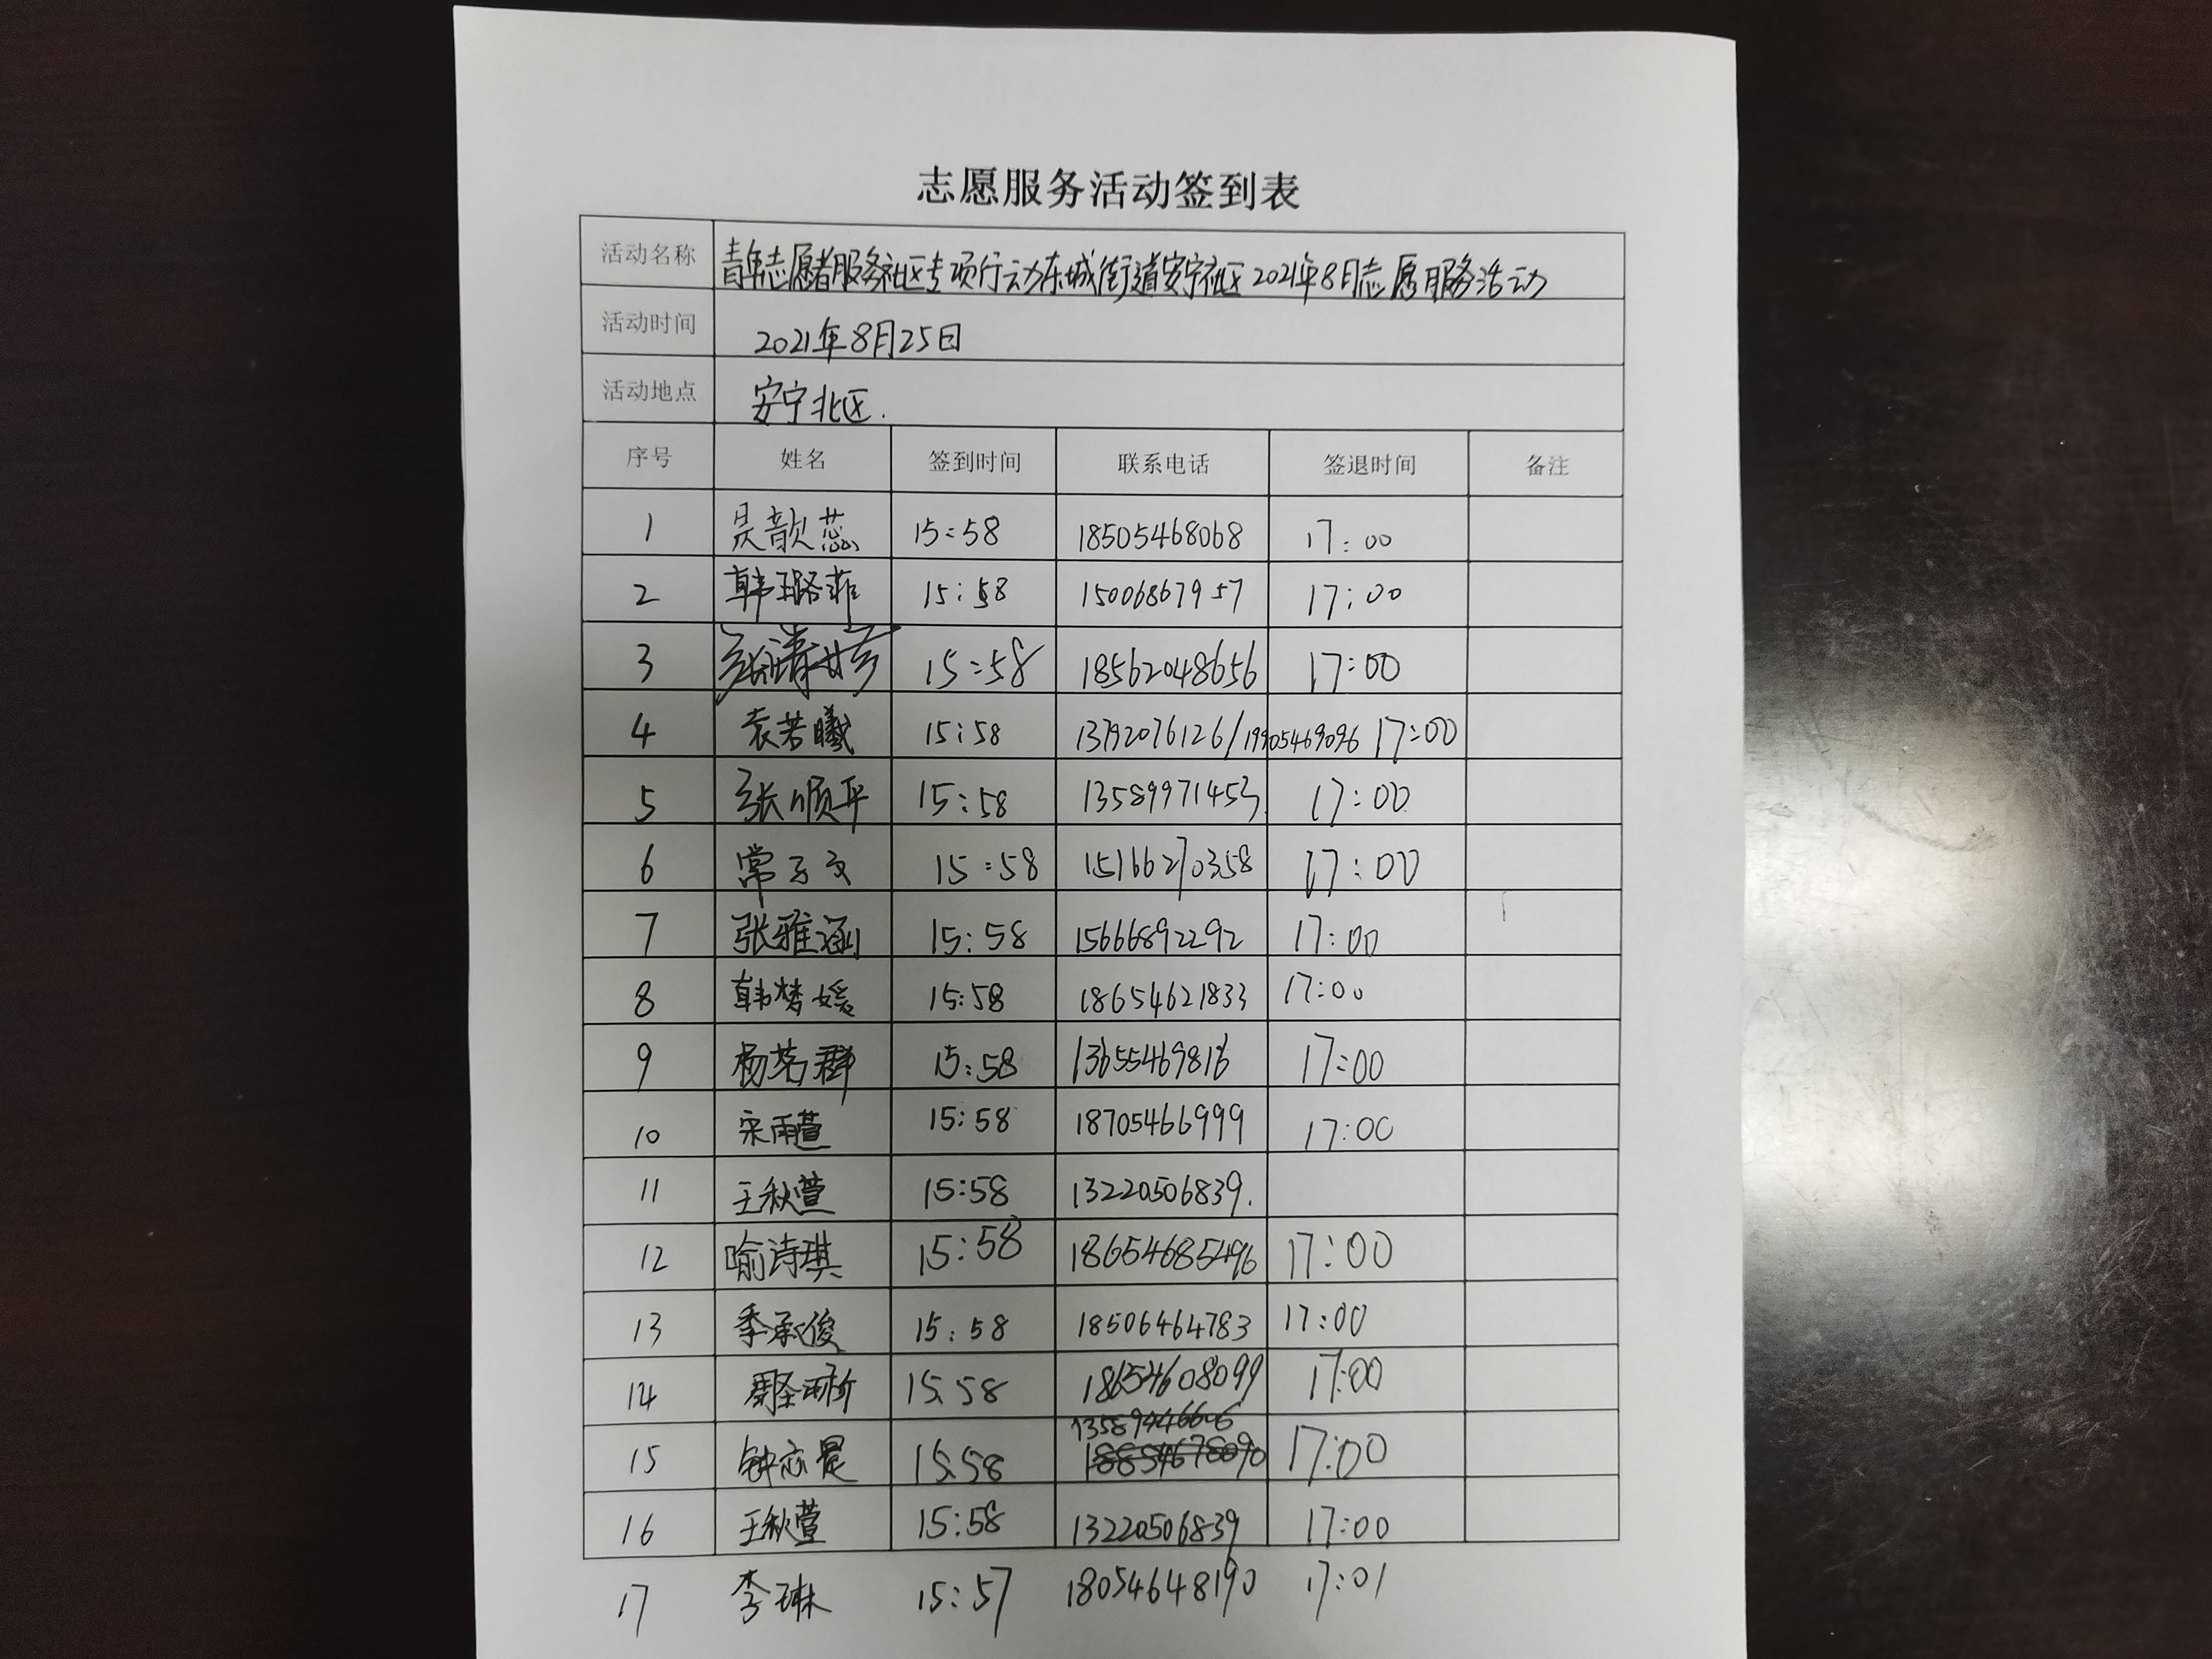 志愿服务活动签到表
活动名称 青年志愿者服务社区专项行动东城街道安宁社区2021年8月志愿服务活动
活动时间 2021年8月25日
活动地点 安宁北区.
序号 姓名 签到时间 联系电话 签退时间 备注
1 吴歆蕊 15:58 18505468068 17:00
2 韩璐菲 15:58 15006867957 17:00
3 15:58 18562048656 17:00
4 袁若曦 15:58 13792076126/19905469096 17:00
5 张顺平 15:58 13589971453 17:00
6 常子文 15:58 15166270358 17:00
7 张雅涵 15:58 15666892292 17:00
8 韩梦媛 15:58 18654621833 17:00
9 杨茗群 15:58 13655469816 17:00
10 宋雨萱 15:58 18705466999 17:00
11 王秋萱 15:58 13220506839.
12 喻诗琪 15:58 18654685496 17:00
13 季承俊 15:58 18506464783 17:00
14 15:58 18654608099 17:00
15 15:58 13589446606 17:00
16 王秋萱 15:58 13220506839 17:00
17 李琳 15:57 18054648190 17:01